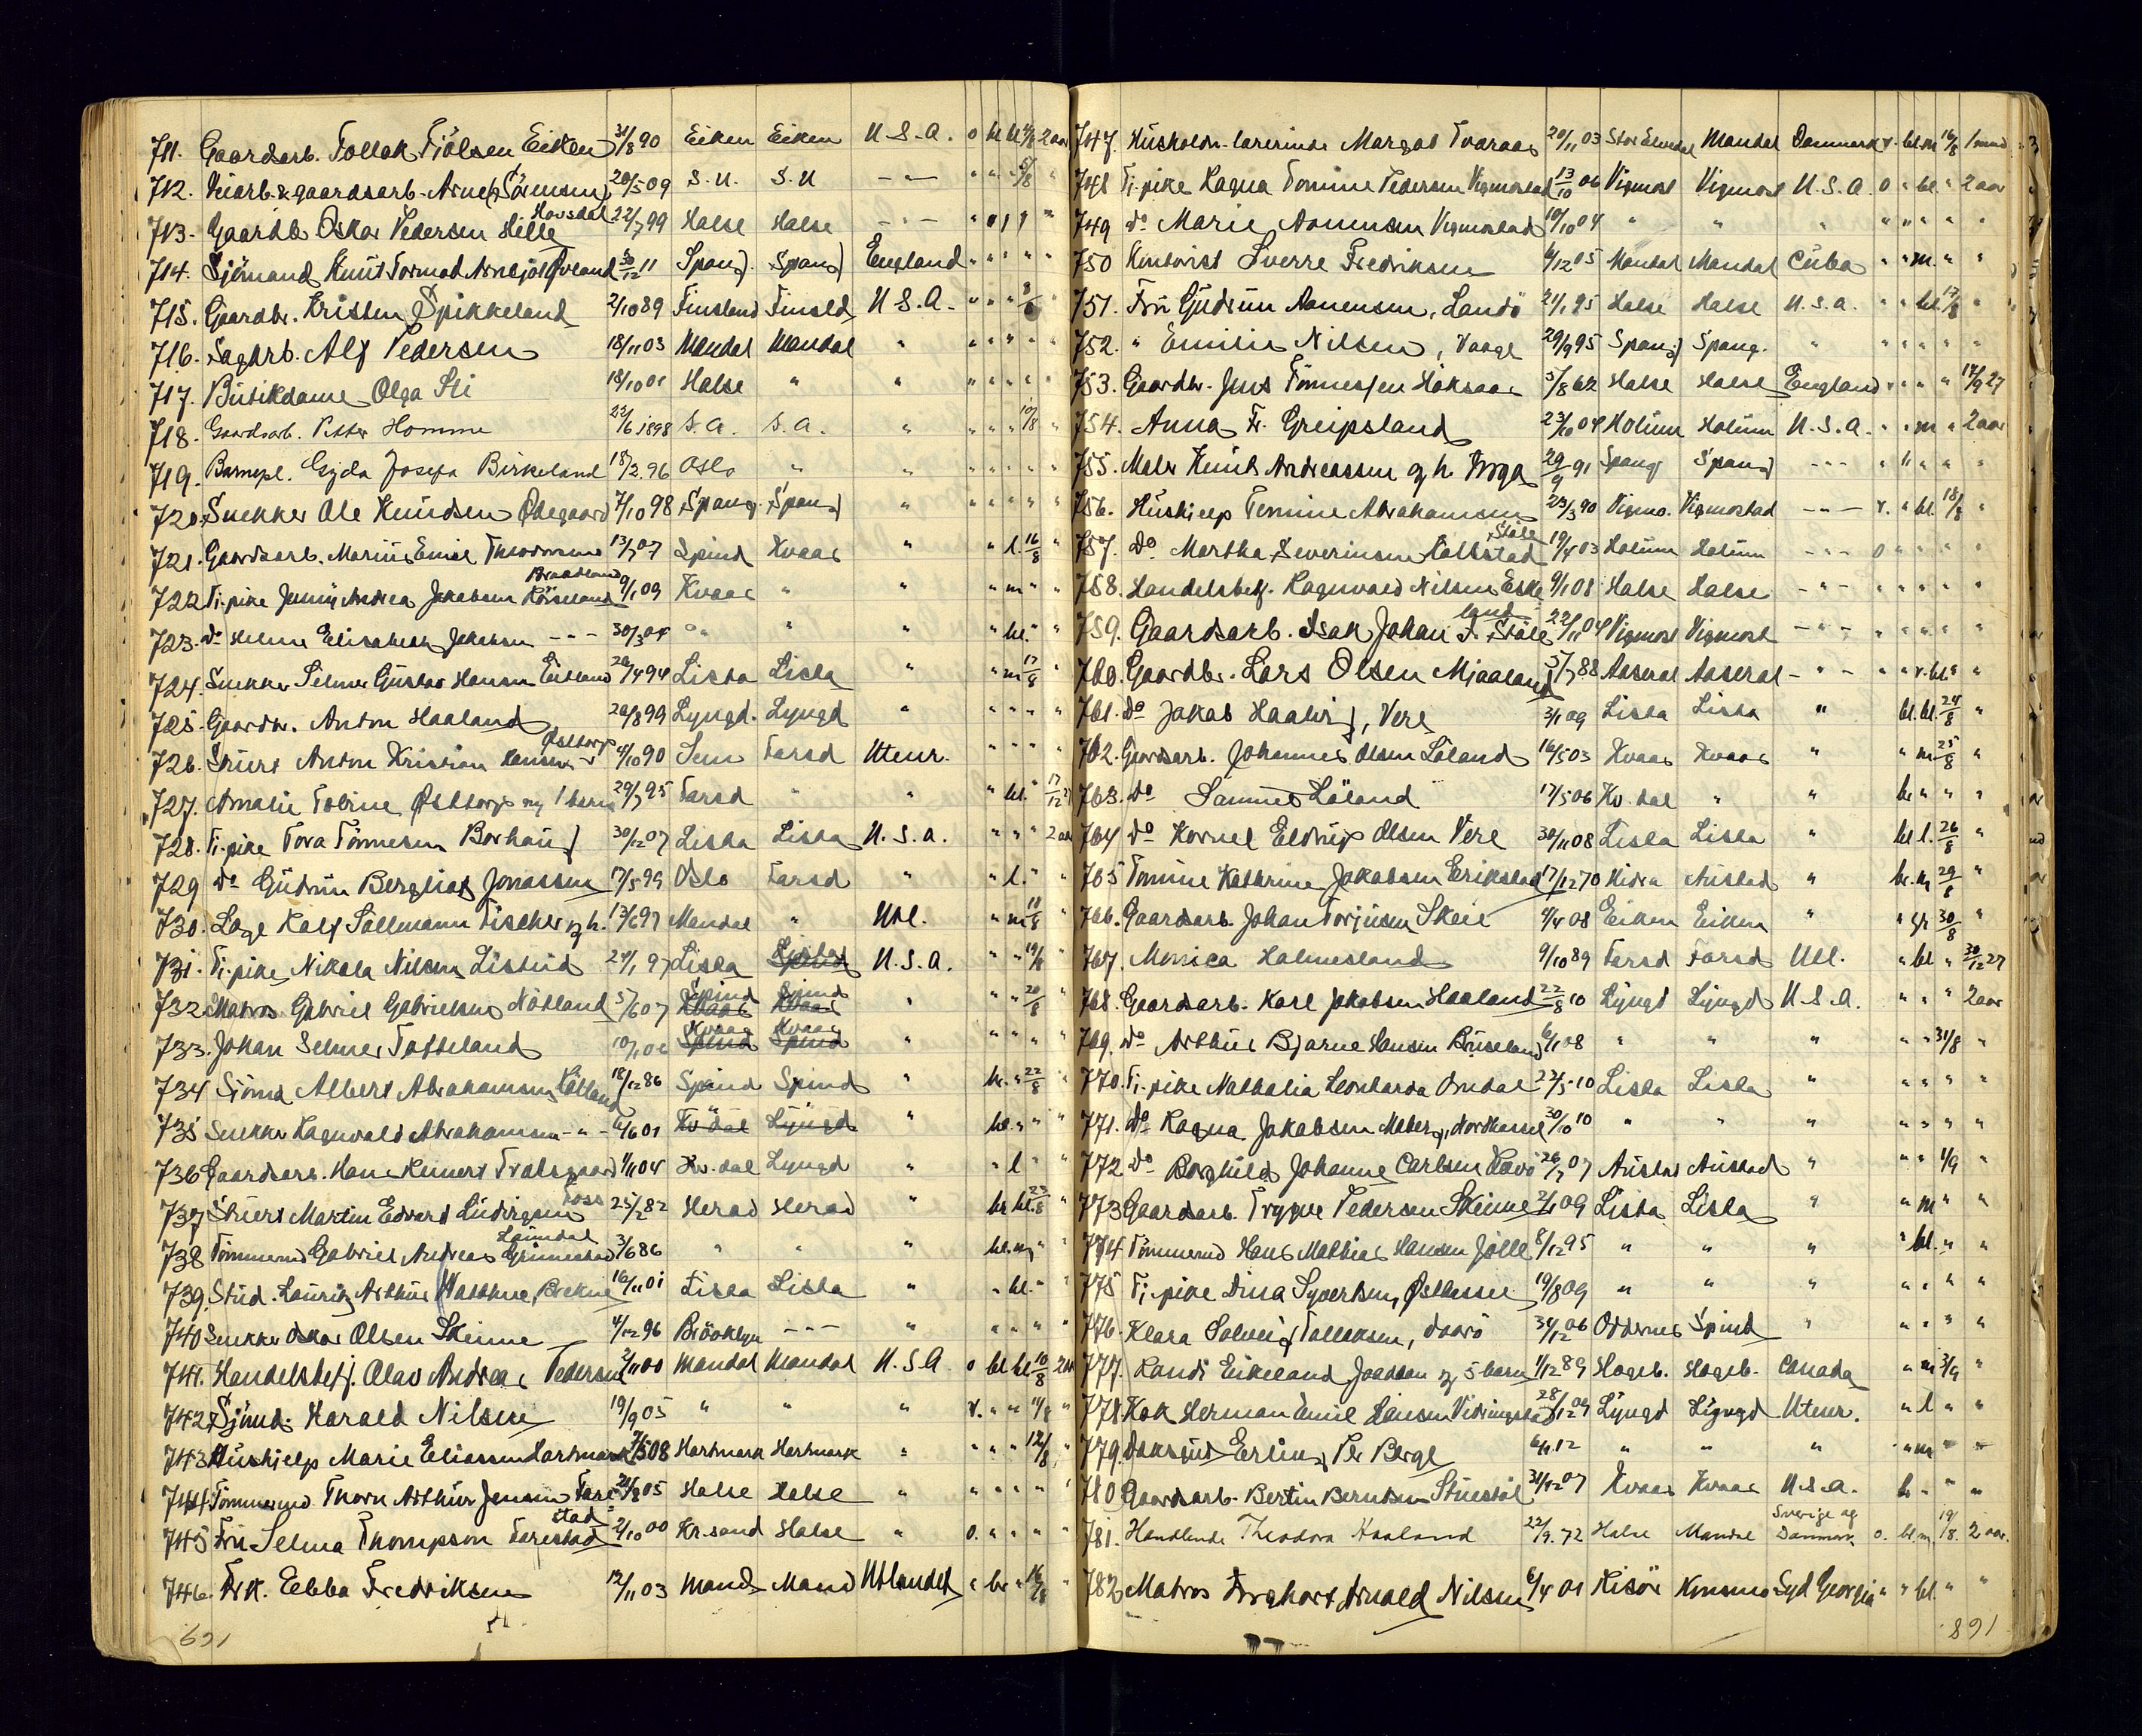 711. Gaardsarb. Tollak Fjölsen Eiken 31/8 90 Eiken Eiken U.S.A. o bl bl 4/8 2 aar
712. Veiarb. & gaardsarb. Arne Sörensen 20/5 09 S.U. S.U -"- " " " 5/8 "
Hovsdal
713. Gaardbr. Oskar Pedersen Hille 22/7 99 Halse Halse -"- "
714. Sjömand Knut Tormod Arnesjöl Öveland 30/12 11 Spang. Spang England " " " " "
715. Gaardbr. Kristen Spikkeland 2/10 89 Finsland Finsld U.S.A. " " " 9/8
716. Sagarb. Alf Pedersen 18/11 03 Mandal Mandal " " " " " "
717. Butikdame Olga Sti 18/10 01 Halse " " " " " " "
718. Gaardsarb. Petter Homme 22/6 1898 S.A. S.A. " " " " 10/8 "
719. Barnepl. Gyda Josefa Birkeland 18/2 96 Oslo " " " " " " "
720. Snekker Ole Knudsen Ödegaard 7/10 98 Spang. Spang " " " " " "
721. Gaardsarb. Marius Emil Theodorsen 13/7 07 Spind Kvaas " " l. 16/8
Braadland
722 Tj.pike Jenny Andrea Jakobsen Röiseland 9/1 09 Kvaas " " " m " "
723. do Helene Elisabeth Jakobsen -"- 30/3 04 " " " " bl. " "
724. Snekker Selmer Gustav Hansen Eitland 20/4 94 Lista Lista " " m 17/8 "
725. Gaardbr. Anton Haaland 20/8 99 Lyngd. Lyngd " " " " "
Östtorp
726. Stuert Anton Kristian Hansen 4/10 90 Sem Farsd Uteur. " " " "
727. Amalie Tobine Östtorp og 1 barn 29/7 95 Farsd " " " bl. " 17/12 27
728. Tj.pike Tora Tönnesen Borhaug 30/12 07 Lista Lista U.S.A. " " " 2 aar
729 do Gudrun Bergliot Jonassen 17/5 99 Oslo Farsd " " l. " "
730. Læge Ralf Sollmann Fischer og h. 13/6 97 Mandal " Utl. " m 18/8 "
Lista
731. Tj.pike Nikola Nilsen Listeid 24/1 97 Lista Spind U.S.A. " " 19/8 "
Spind Spind
732 Matros Gabriel Gabrielsen Nötland 5/6 07 Kvaas Kvaas " " " 20/8 "
Kvaas Kvaas
733. Johan Selmer Tofteland 10/1 06 Spind Spind " " " " "
734 Sjömd Albert Abrahamsen Rötland 18/12 86 Spind Spind " br. " 22/8 "
735 Snekker Ragnvald Abrahamsen -"- 6/6 01 Kv dal Lyngd " bl. " " "
736 Gaardsarb. Hans Reinert Tratsgaard 1/11 04 Kv. dal Lyngd " " l " "
Foss
737 Stuert Martin Edvard Ludvigsen 25/2 82 Herad Herad " br bl. 23/8 "
Laumdal
738 Tömmermd Gabriel Andreas Grimestad 3/6 86 " " " bl. m " "
739. Stud. Lauritz Arthur Watthne, Brekne 16/11 01 Lista Lista " " bl. " "
740 Snekker Oskar Olsen Skeime 4/12 96 Brooklyn -"- " " " " "
741. Handelsbetj. Olav Andreas Pedersen 2/11 00 Mandal Mandal U.S.A. o bl bl 10/8 2 aar
742 Sjömd. Harald Nilsen 19/9 05 " " " v. " " 11/8 "
743 Hushjelp Marie Eliassen Hartmark 7/5 08 Hartmark Hartmark " " " " 12/8 "
744 Tömmermd. Thorn Arthur Jensen Fare 21/8 05 Halse Halse " " " " " "
stad
745 Fru Selma Thompson Farestad 2/10 00 Kr.sand Halse " o. " " " "
746. Frk. Ebba Fredriksen 12/11 03 Mand. Mand Utlandet " br " 16/8 "
691
747. Husholdn.lærerinde Margot Tvaraas 20/11 03 Stor Elvedal Mandal Danmark v. bl. m 16/8 1 mnd
748 Tj.pike Ragna Tomine Pedersen Vigmostad 13/10 06 Vigmost Vigmost U.S.A. o " bl. " 2 aar
749 do Marie Aanensen Vigmostad 10/10 04 " " " " " " " "
750 Sverre Fredriksen 6/12 05 Mandal Mandal Cuba " " m. " "
751. Fru Gudrun Aanensen, Landö 21/1 95 Halse Halse U.S.A. " " bl. 17/8 "
752. " Emilie Nilsen, Vaage 29/9 95 Spang Spang. " " " " " "
753. Gaardbr. Jens Tönnessen Höksaas 5/8 62 Halse Halse England " " " " 17/9 27
754. Anna Fr. Greipsland 23/10 04 Holum Holum U.S.A. " " m " 2 aar
755. Maler Knut Andreassen og h. Troga 29/9 91 Spang Spang -"- " " " " "
756. Hushjelp Temine Abrahamsen 23/3 90 Vigmo. Vigmostad -"- v. " bl. 18/8 "
Støle
757. do Martha Severinsen Valkstad 19/4 03 Holum Holum -"- o " " " "
758. Handelsbetj. Ragnvald Nilsen Eske 9/1 08 Halse Halse -"- " " " " "
land
759. Gaardsarb. Isak Johan T. Støle 22/11 04 Vigmost Vigmost -"- " " " " "
760. Gaardbr. Lars Olsen Mjaaland 5/7 88 Aaseral Aaseral -"- " " v. bl. " "
761. do Jakob Haahr, Vere 3/1 09 Lista Lista " bl. bl. 24/8 "
762. Gaardsarb. Johannes Olsen Löland 16/5 03 Kvaas Kvaas " " m 25/8 "
763. do Samuel Löland 17/5 06 Kv. dal " " br " " "
764 do Kornel Eldrup Olsen Vere 30/11 08 Lista Lista " bl l. 26/8 "
765 Tomine Kathrine Jakobsen Erikstad 17/12 70 Hidra Austad " br. m 29/8 "
766. Gaardsarb. Johan Torjusen Skeie 9/4 08 Eiken Eiken " " gr 30/8 "
767. Monica Halmesland 9/10 89 Farsd Farsd Utl. " bl " 30/12 27
768. Gaardsarb. Karl Jakobsen Haaland 22/8 10 Lyngd Lyngd U.S.A. " " " 2 aar
769. do Arthur Bjarne Hansen Briseland 6/11 08 " " " " " 31/8 "
770. Tj.pike Nathalia Leonharda Omdal 22/5 10 Lista Lista " " " " "
771. do Ragna Jakobsen Meberg, Nordhassel 30/10 10 " " " " " " "
772 do Borghild Johanne Carlsen Kavö 26/7 07 Austad Austad " " " 1/9 "
773 Gaardsarb. Trygve Pedersen Skeime 2/11 09 Lista Lista " " m " "
774 Tömmermd Hans Mathias Hansen Jölle 8/12 95 " " " " bl. " "
775 Tj.pike Dina Syvertsen, Østhassel 19/8 09 " " " " " " "
776. Klara Solveig Tallaksen, Saarö 31/12 06 Oddernes Spind " " " " "
777. Randi Eikeland Joadden og 5 barn 1/12 89 Hægeb. Hægeb. Canada " m 3/9 "
778. Kok Herman Emil Hansen Vidringstad 28/12 09 Lyngd Lyngd Uteur. " l " "
779. Daksgut Erling Per Berge 6/11 12 " " " " m " "
780 Gaardsarb. Bertin Berntsen Stuestöl 31/12 07 Kvaas Kvaas U.S.A. br " " "
Sverige og
781. Handlende Theodora Haaland 22/9. 72 Halse Mandal Danmark o. bl. m. 19/8. 2 aar.
782 Matros Arnold Nilsen 6/4 01 Risör Kinsmo Syd Georgia " " bl. " "
891